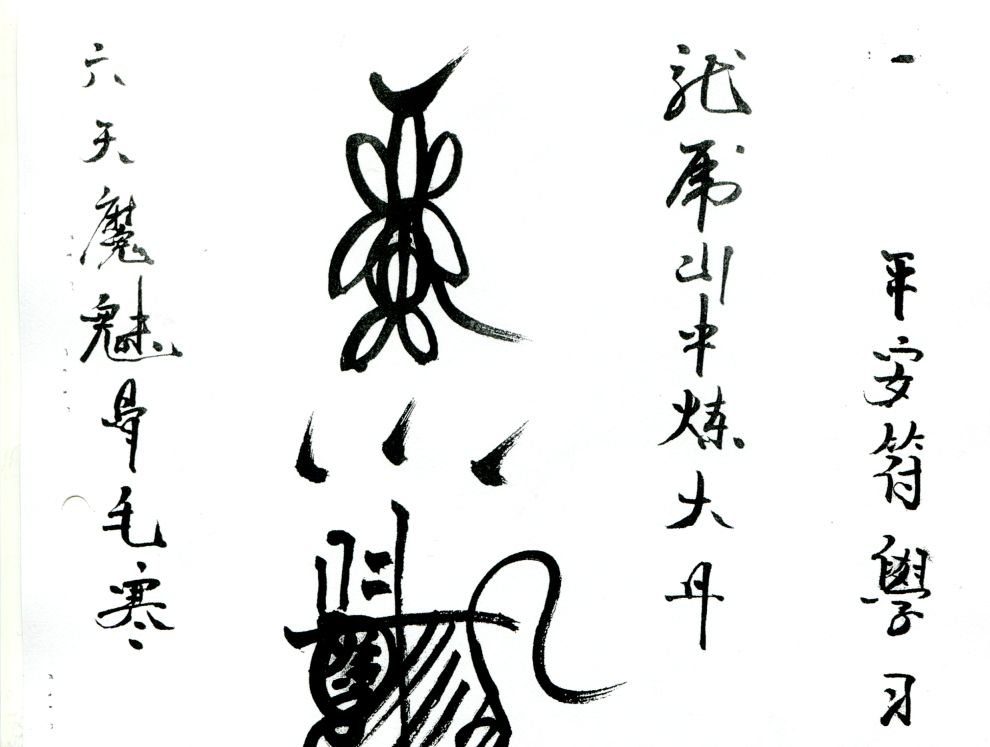 一 平安符學习
龍虎山中炼大丹
六天魔魅骨毛寒